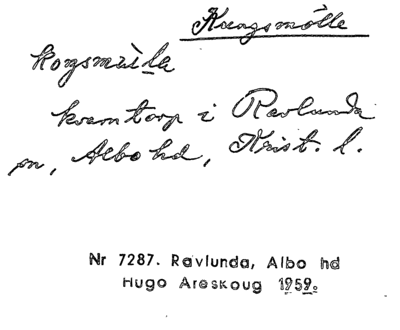 Kungsmölle
kongsmùila
kvarntorp i Ravlunda
sn, Albo hd, Krist. l.
Nr 7287. Ravlunda, Albo hd
Hugo Areskoug 1959.